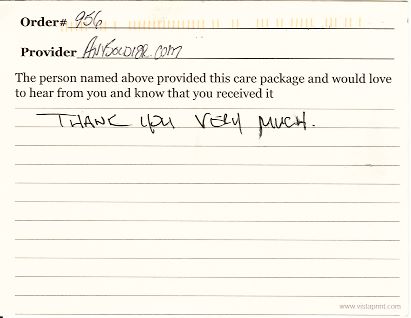 Order# 956
Provider ANYSOLDIER.COM
The person named above provided this care package and would love
to hear from you and know that you received it
THANK YOU VERY MUCH.
www.vistaprint.com